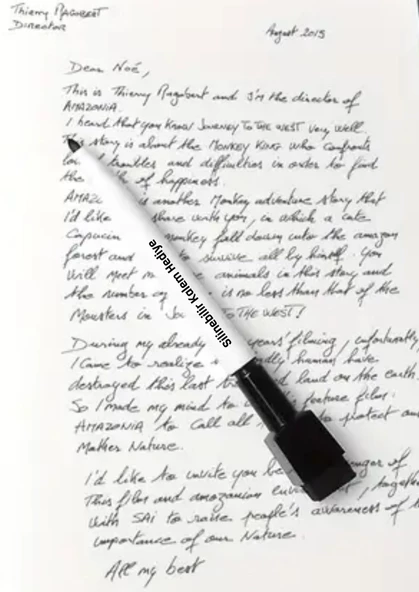 Thierry RAGOBERT
DIRECTOR
August 2015
Dear Noé,
This is Thierry Ragobert and I'm the director of
AMAZONIA.
I heard that you know JOURNEY TO THE WEST very well.
This story is about the MONKEY KING who confronts
troubles and difficulties in order to find
the of happiness.
is another Monkey adventure story that
I'd like share with you, in which a cute
Capucin monkey fall down into the amazon
forest and to survive all by himself. You
will meet animals in this story and
the number of is no less than that of the
Monsters in TO THE WEST!
Silinebilir Kalem Hediye
During my already years filming, unfortunately
I came to realize human have
destroyed this last land on the earth.
So I made my mind to feature film:
AMAZONIA to call all to protect our
Mother Nature.
I'd like to invite you
This film and amazonian
with SAI to raise people's awareness of
importance of our Nature.
All my best